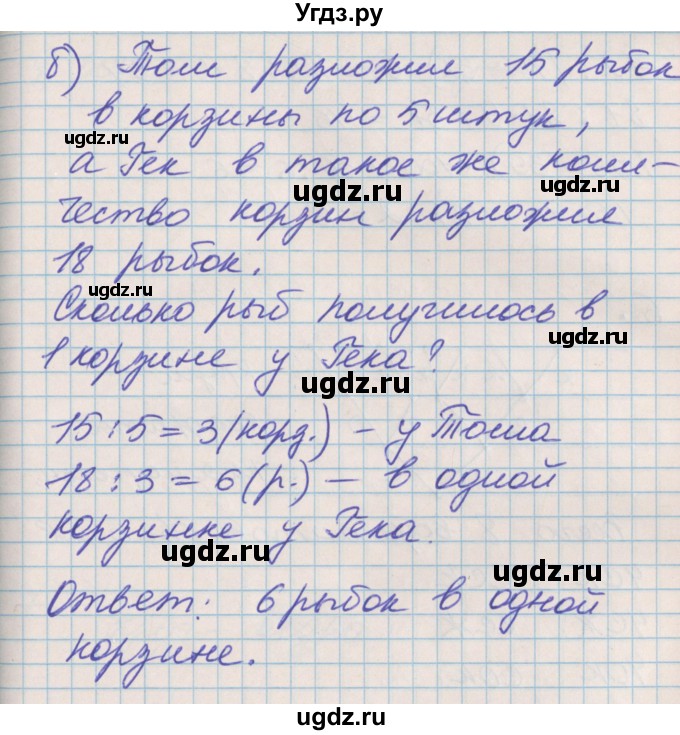 Угдз.ру
б) Том разложил 15 рыбок
в корзины по 5 штук,
а Гек в такое же коли-
чество корзин разложил
18 рыбок.
Сколько рыб получилось в
1 корзине у Гека?
15:5=3(корз.) – у Тома
18:3=6(р.) – в одной
корзинке у Гека.
Ответ: 6 рыбок в одной
корзине.
ugdz.ru
ugdz.ru
ugdz.ru
ugdz.ru
ugdz.ru
ugdz.ru
ugdz.ru
ugdz.ru
ugdz.ru
ugdz.ru
ugdz.ru